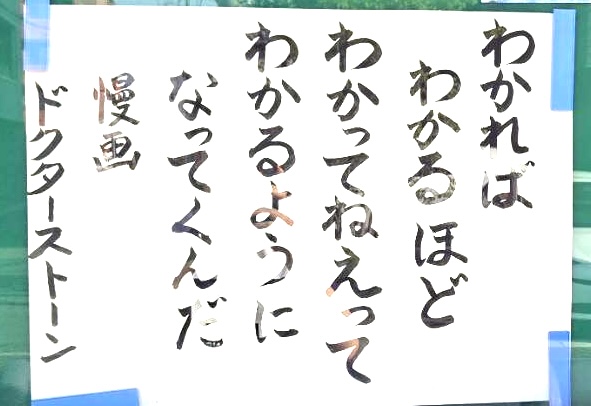 わかれば
わかるほど
わかってねえって
わかるように
なってくんだ
漫画
ドクターストーン